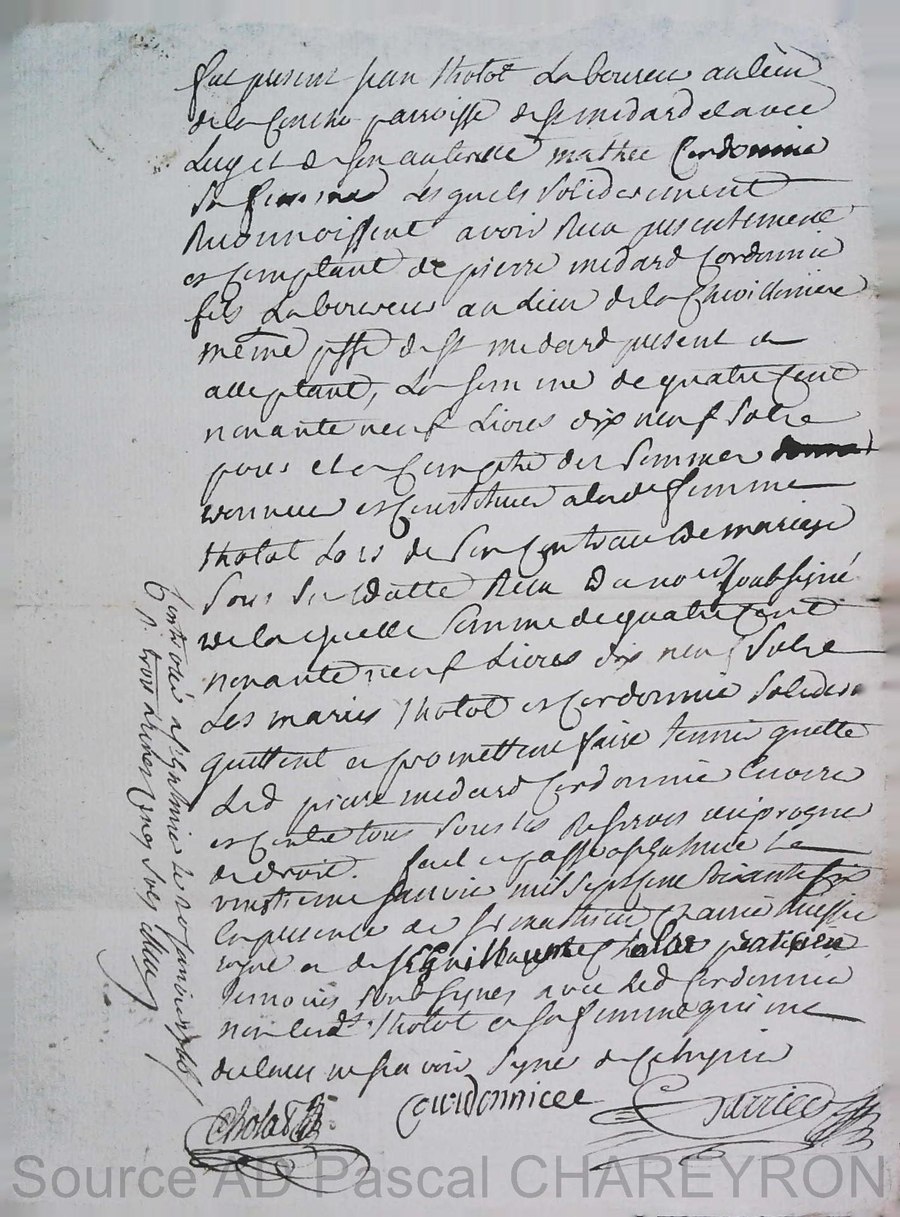 fut present jean thotot Laboureur au lieu
de la Conche parroisse de st medard et avec
Luy et de son autorité mathee Cordonnie
sa femme Lesquels solidairement
Reconnoissent avoir Receu presentement
et Comptant de pierre medard Cordonnie
fils Laboureur au Lieu de la
même psse de st medard present et
acceptant, La somme de quatre Cent
nonante neuf Livres dix neuf sols
pour et en Compte des sommes
et Constituée a lade femme
thotot Lors de son Contract De mariage
sous sa datte Receu Du nore soubsigné
De laquelle somme de quatre Cent
nonante neuf Livres dix neuf sols
Les maries thotot et Cordonnie solidere
quittent et promettent faire tenir quitte
Led pierre medard Cordonnie Envers
et Contre tous sous les Reserves
de droit. fait et passé a st Le
vingtieme janvie mil sept cent soixante six
En presence de sr mathieu
et de sr Guillaume Cholat praticien
temoins soubsignes avec Led Cordonnie
non Led. thotot et sa femme qui ont
declaré ne scavoir signé de
Cholat Courdonnicee
Controlé a st le janvie 1766
R. trois Livres Cinq sols
Source AD Pascal CHAREYRON